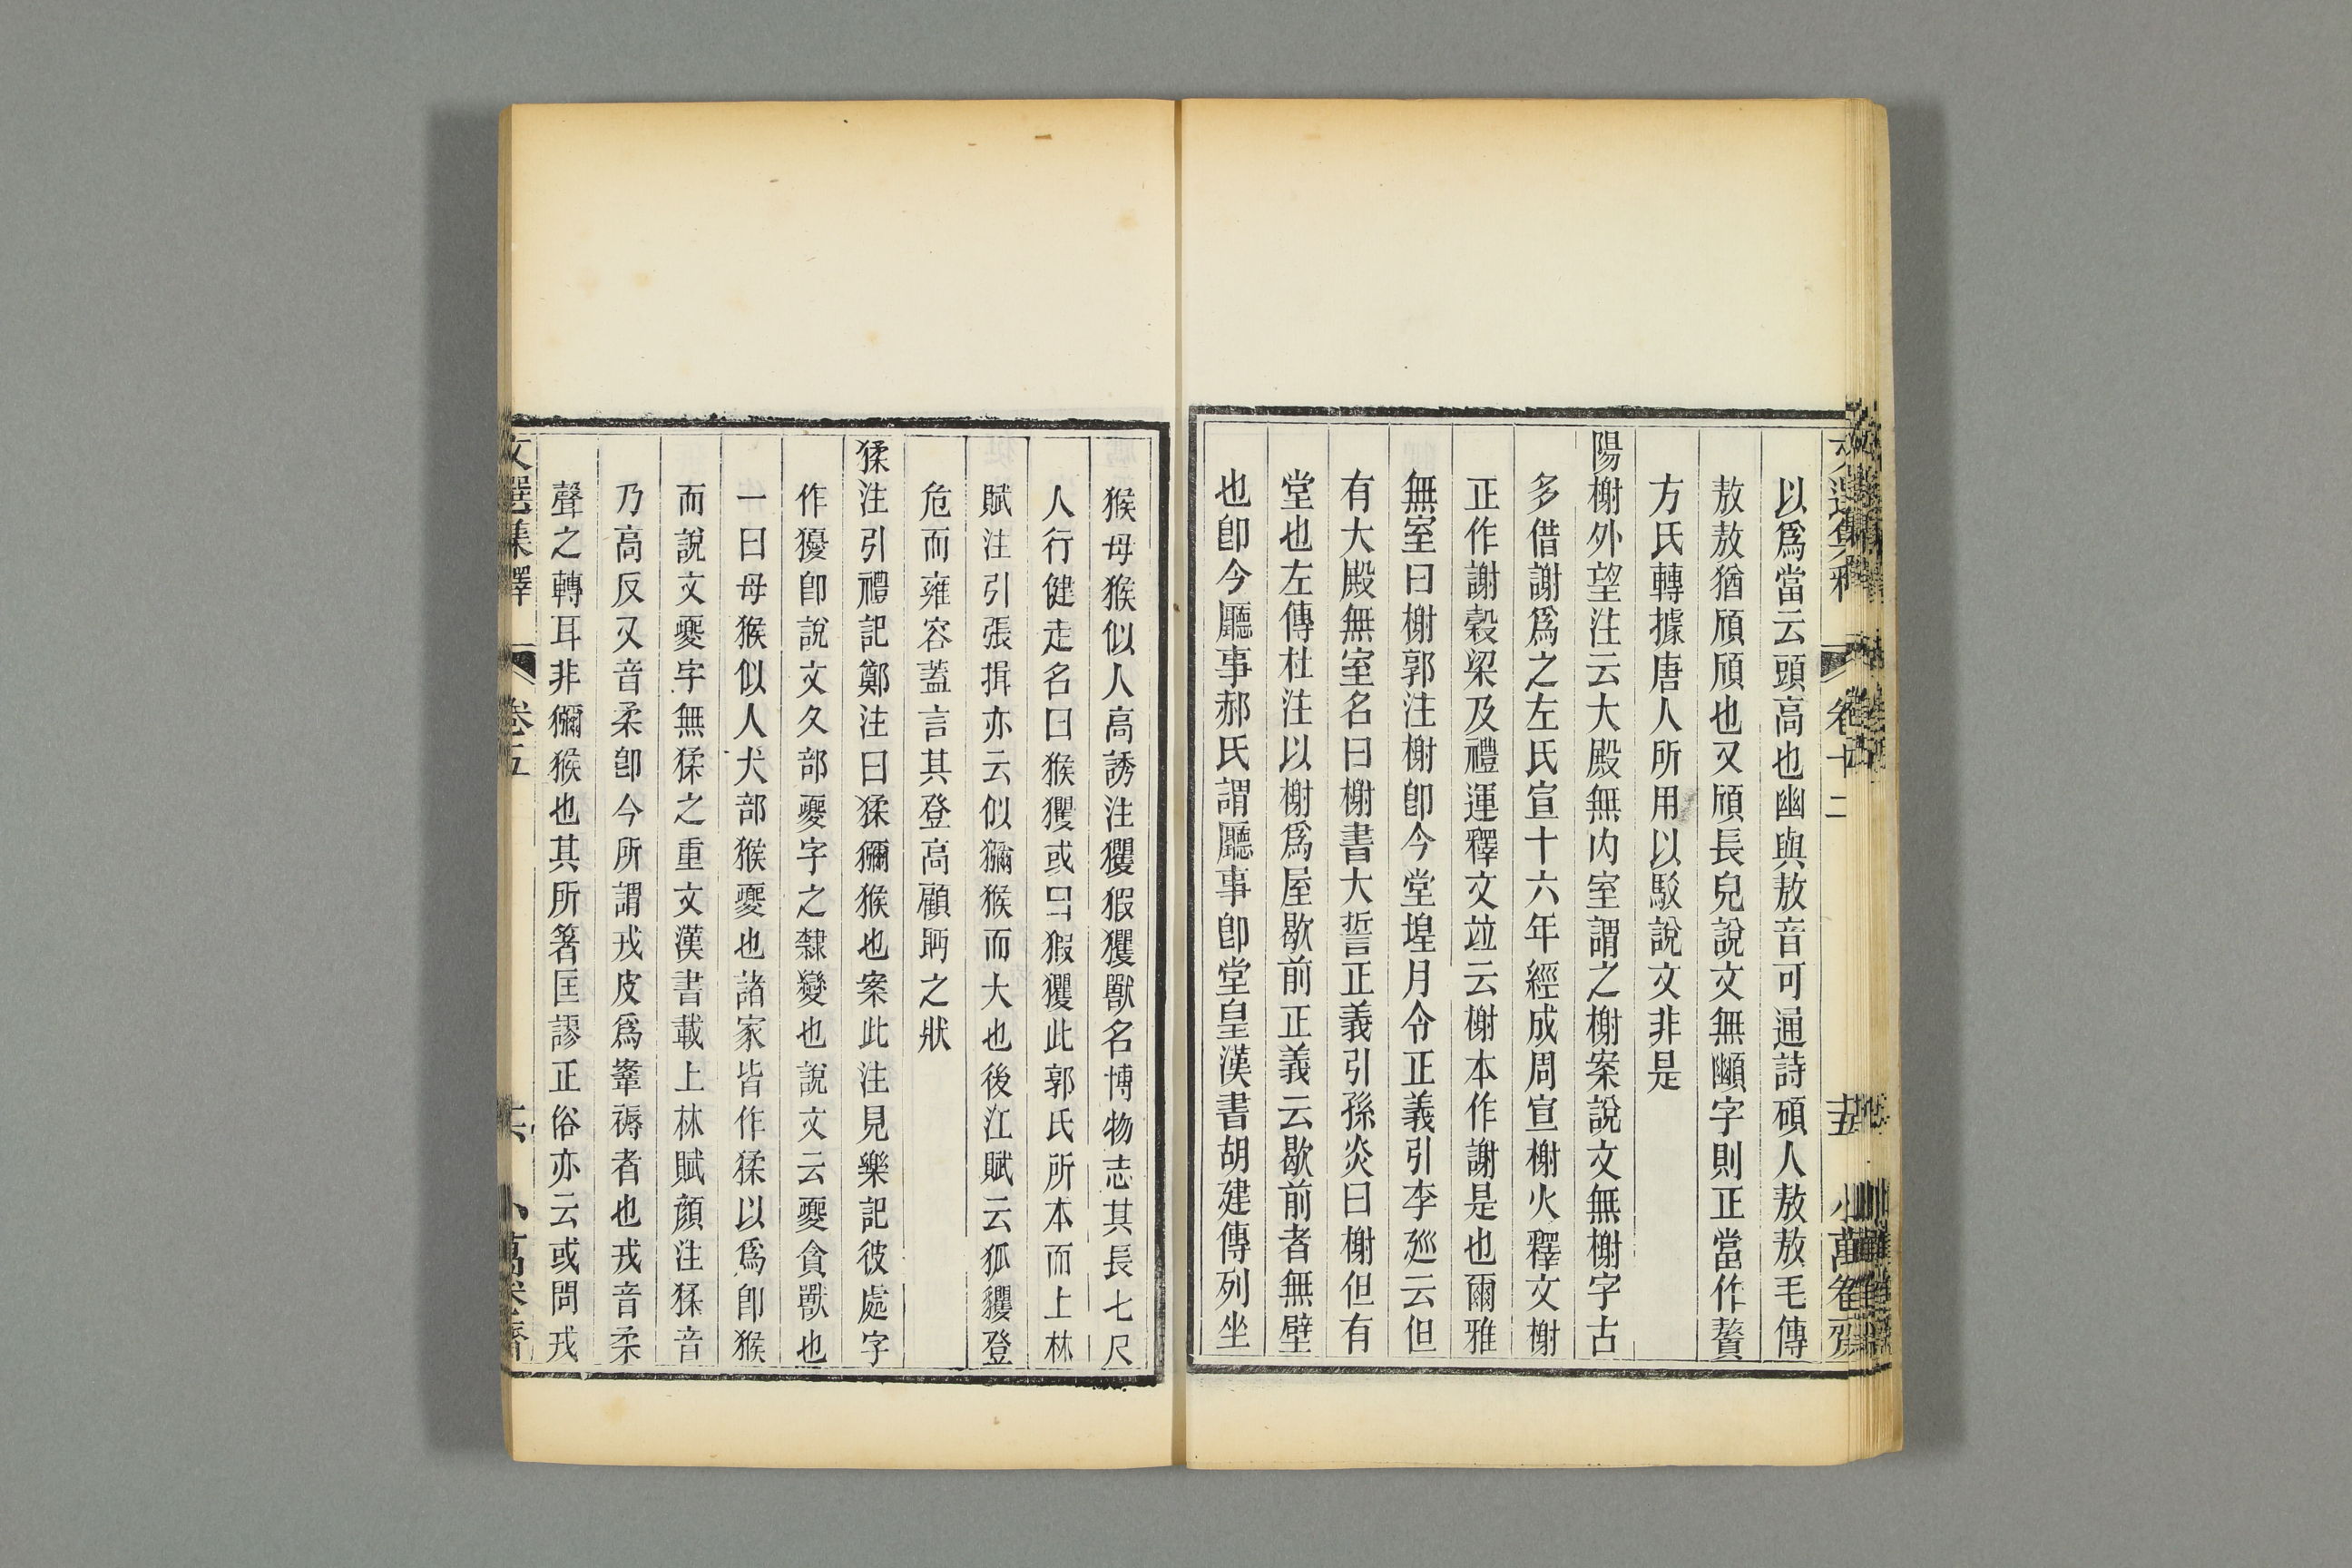 文選集釋 卷十二 十五 小萬卷齋
以爲當云頭高也幽與敖音可通詩碩人敖敖毛傳
敖敖猶頎頎也又頎長皃說文無顤字則正當作贅
方氏轉據唐人所用以駁說文非是
陽榭外望注云大殿無内室謂之榭案說文無榭字古
多借謝爲之左氏宣十六年經成周宣榭火釋文榭
正作謝穀梁及禮運釋文竝云榭本作謝是也爾雅
無室曰榭郭注榭卽今堂堭月令正義引李廵云但
有大殿無室名曰榭書大誓正義引孫炎曰榭但有
堂也左傳杜注以榭爲屋歇前正義云歇前者無壁
也卽今廳事郝氏謂廳事卽堂皇漢書胡建傳列坐
猴母猴似人高誘注玃猳玃獸名博物志其長七尺
人行健走名曰猴玃或曰猳玃此郭氏所本而上林
賦注引張揖亦云似獼猴而大也後江賦云狐玃登
危而雍容蓋言其登高顧眄之狀
猱注引禮記鄭注曰猱獼猴也案此注見樂記彼處字
作獶卽說文夂部夒字之隸變也說文云夒貪獸也
一曰母猴似人犬部猴夒也諸家皆作猱以爲卽猴
而說文夒字無猱之重文漢書載上林賦顔注猱音
乃高反又音柔卽今所謂戎皮爲鞌褥者也戎音柔
聲之轉耳非獼猴也其所箸匡謬正俗亦云或問戎
文選集釋 卷五 小萬卷齋